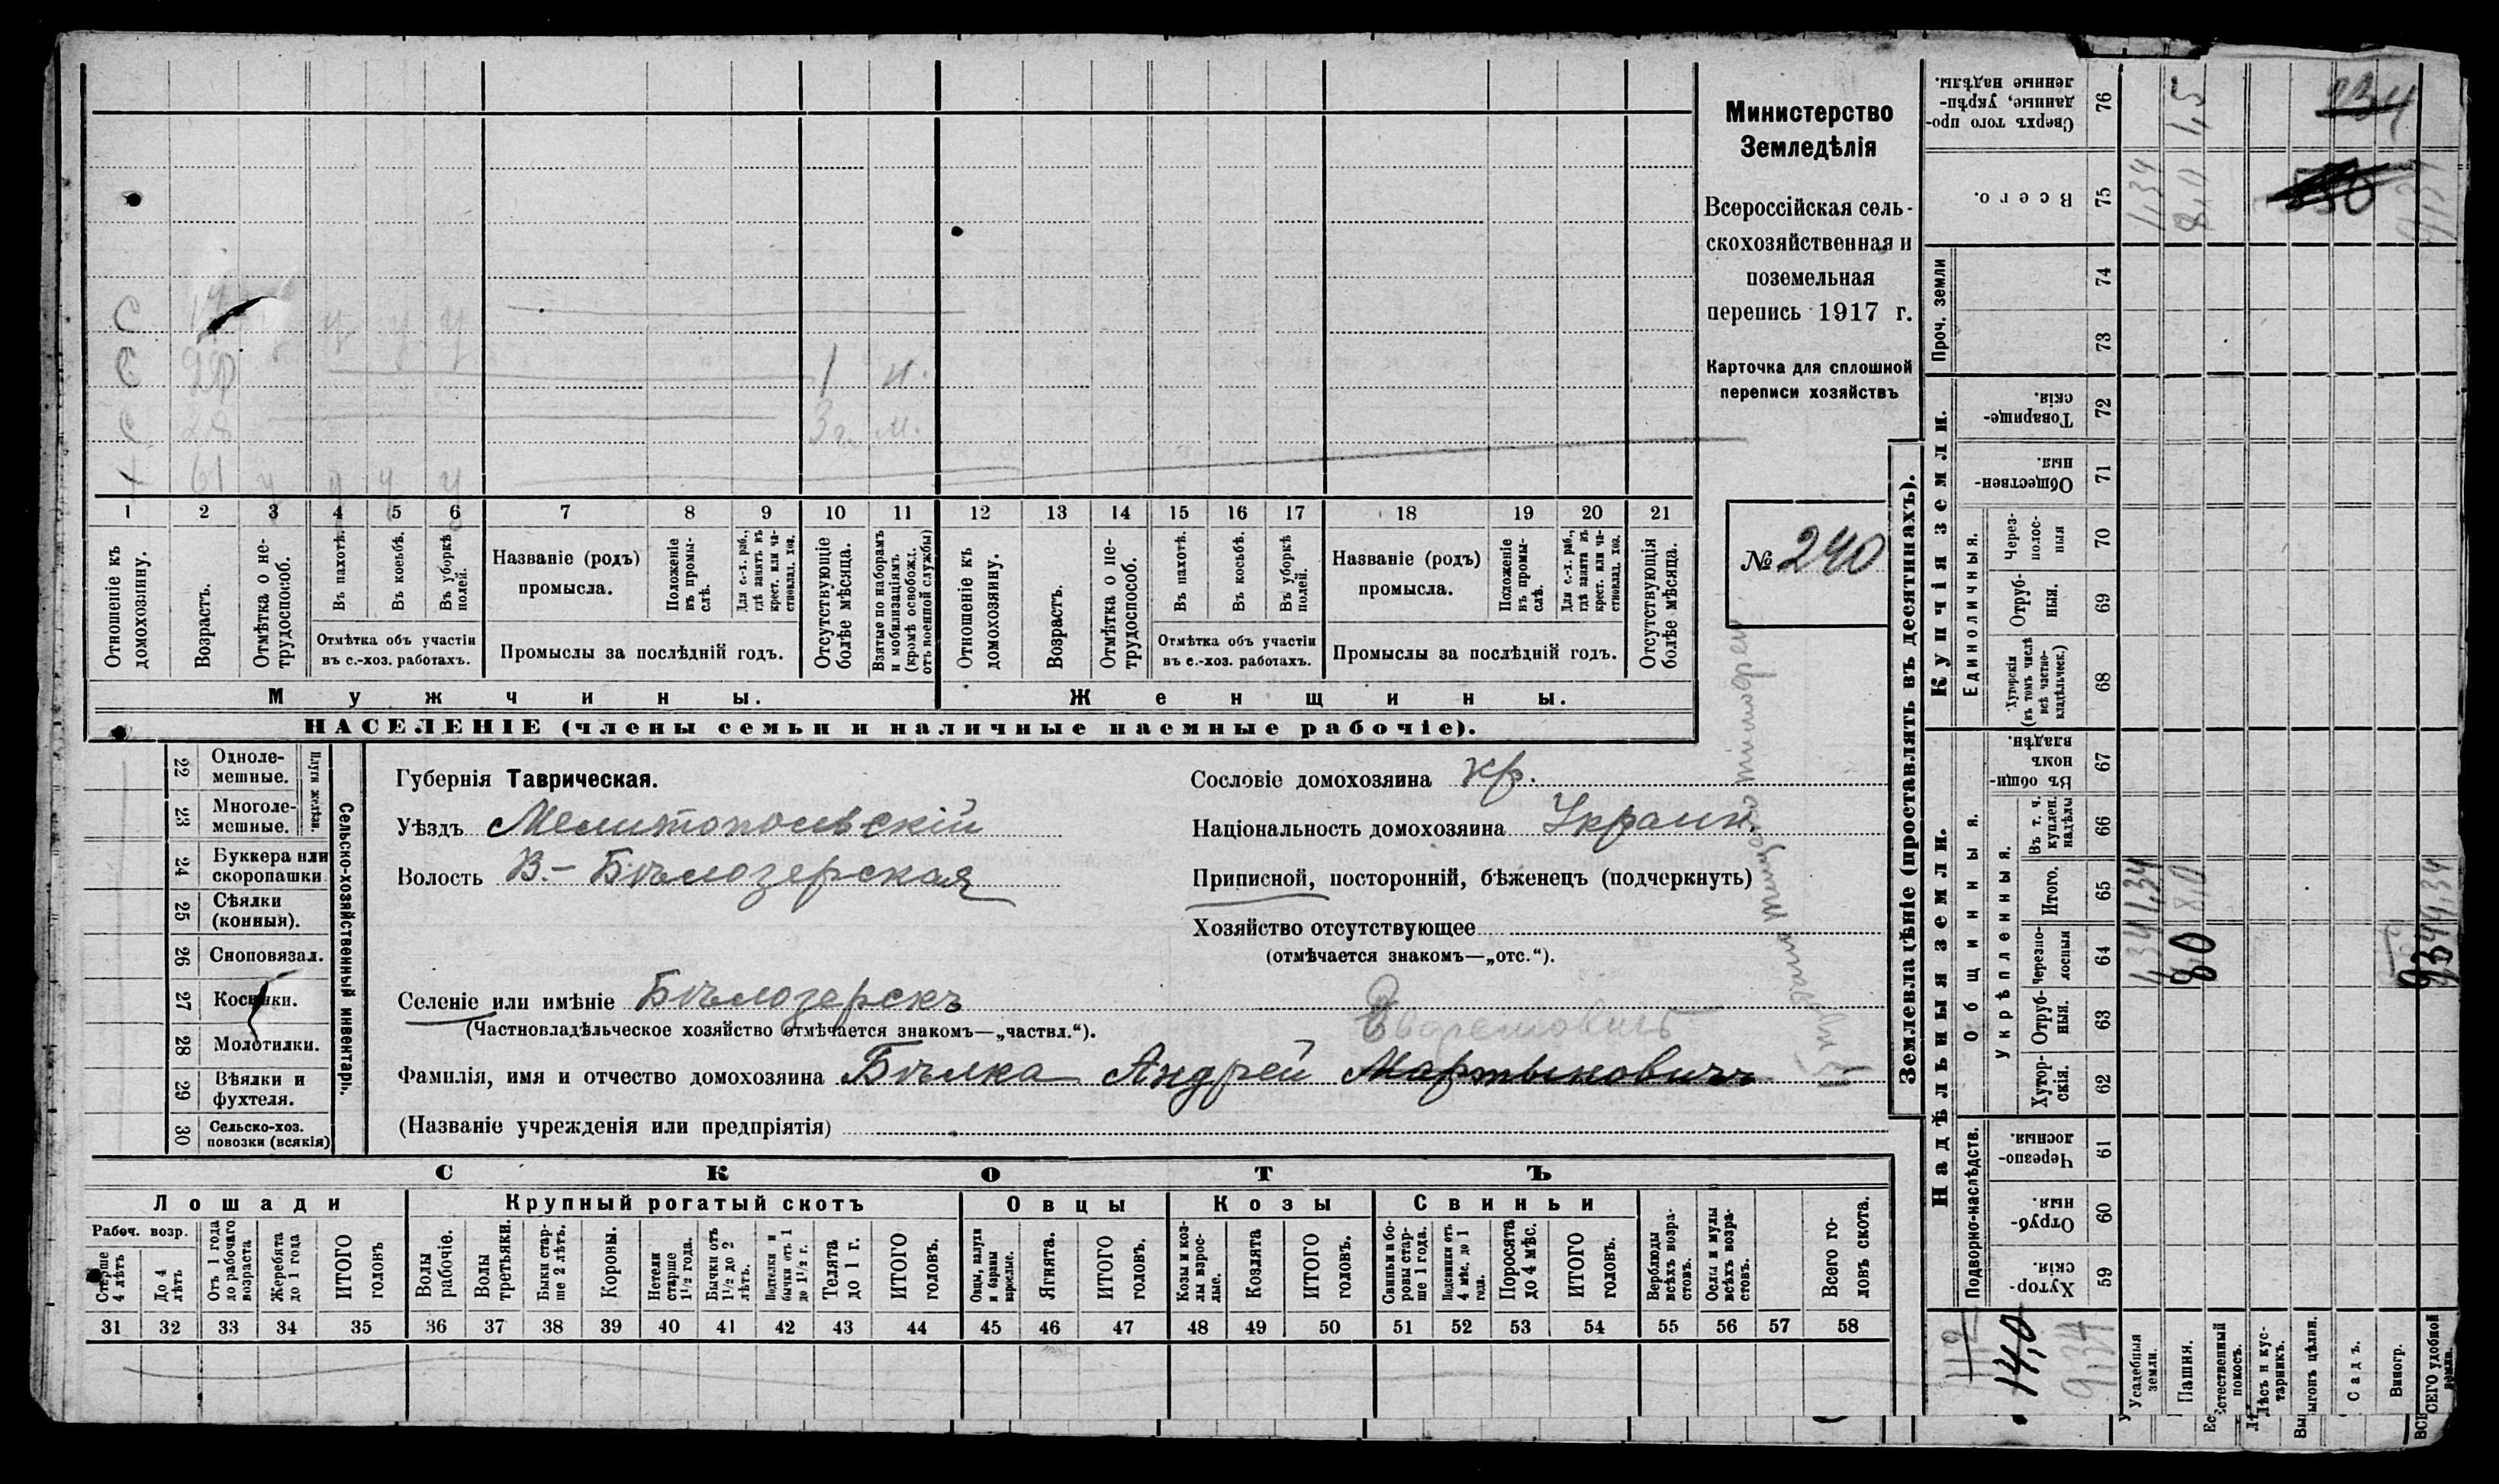 С 17 у у у у
С 20 1 м.
С 28 3 г. м.
х 61 у у у у
1 2 3 4 5 6 7 8 9 10 11 12 13 14 15 16 17 18 19 20 21
Отношеніе къ домохозяину.
Возрастъ.
Отмѣтка о не-трудоспособ.
Въ пахотѣ.
Въ косьбѣ.
Въ уборкѣ полей.
Отмѣтка объ участіи въ с.-хоз. работахъ.
Названіе (родъ) промысла.
Положеніе въ промы-слѣ.
Для с.-х. раб., гдѣ занятъ въ крест. или ча-стновлад. хоз.
Промыслы за послѣдній годъ.
Отсутствующіе болѣе мѣсяца.
Взятые по наборамъ и мобилизаціямъ (кромѣ освобожд. отъ военной службы)
Отношеніе къ домохозяину.
Возрастъ.
Отмѣтка о не-трудоспособ.
Въ пахотѣ.
Въ косьбѣ.
Въ уборкѣ полей.
Отмѣтка объ участіи въ с.-хоз. работахъ.
Названіе (родъ) промысла.
Положеніе въ промы-слѣ.
Для с.-х. раб., гдѣ занятъ въ крест. или ча-стновлад. хоз.
Промыслы за послѣдній годъ.
Отсутствующія болѣе мѣсяца.
Мужчины. Женщины.
НАСЕЛЕНІЕ (члены семьи и наличные наемные рабочіе).
Министерство
Земледѣлія
Всероссійская сель-
скохозяйственная и
поземельная
перепись 1917 г.
Карточка для сплошной
переписи хозяйствъ
№ 240
22 Одноле-мешные.
23 Многоле-мешные.
Плуги желѣзн.
24 Буккера или скоропашки
25 Сѣялки (конныя).
26 Сноповязал.
27 Косилки.
28 Молотилки.
29 Вѣялки и фухтеля.
30 Сельско-хоз. повозки (всякія)
Сельско-хозяйственный инвентарь.
Губернія Таврическая.
Уѣздъ Мелитопольскій
Волость В.-Бѣлозерская
Селеніе или имѣніе Бѣлозерскъ
(Частновладѣльческое хозяйство отмѣчается знакомъ—„частвл.“).
Сословіе домохозяина кр.
Національность домохозяина Украин.
Приписной, посторонній, бѣженецъ (подчеркнуть)
Хозяйство отсутствующее
(отмѣчается знакомъ—„отс.“).
Фамилія, имя и отчество домохозяина Бѣлка Андрей Мартыновичъ
(Названіе учрежденія или предпріятія)
СКОТЪ
Лошади Крупный рогатый скотъ Овцы Козы Свиньи
Рабоч. возр.
Старше 4 лѣтъ
До 4 лѣтъ
Отъ 1 года до рабочаго возраста
Жеребята до 1 года
ИТОГО головъ
Волы рабочіе.
Волы третьяки.
Быки стар-ше 2 лѣтъ.
Коровы.
Нетели старше 1½ года.
Бычки отъ 1½ до 2 лѣтъ.
Подтелки и бычки отъ 1 до 1½ г.
Телята до 1 г.
ИТОГО головъ.
Овцы, валухи и бараны взрослые.
Ягнята.
ИТОГО головъ.
Козы и коз-лы взрос-лые.
Козлята
ИТОГО головъ.
Свиньи и бо-ровы стар-ше 1 года.
Подсвинки отъ 4 мѣс. до 1 года.
Поросята до 4 мѣс.
ИТОГО головъ.
Верблюды всѣхъ возра-стовъ.
Ослы и мулы всѣхъ возра-стовъ.
Всего го-ловъ скота.
31 32 33 34 35 36 37 38 39 40 41 42 43 44 45 46 47 48 49 50 51 52 53 54 55 56 57 58
Землевладѣніе (проставлять въ десятинахъ).
Надѣльныя земли.
Купчія земли.
Проч. земли
Подворно-наслѣдств.
Общинныя.
Укрѣпленныя.
Единоличныя.
Сверхъ того про-данные, укрѣп-ленные надѣлы. 76
Всего. 75
74
73
Товарище-скія. 72
Обществен-ныя. 71
Через-полос-ныя 70
Отруб-ныя. 69
Хуторскія (въ томъ числѣ всѣ частно-владѣльческ.) 68
Въ общин-номъ владѣн. 67
Въ т. ч. куплен. надѣлы 66
Итого. 65
Черезпо-лосныя 64
Отруб-ныя. 63
Хутор-скія. 62
Черезпо-лосныя. 61
Отруб-ныя. 60
Хутор-скія. 59
1,5
1,34 8,0 9,34
1,34 8,0 9,34
1,34 8,0 9,34
14,0
9,34
Усадебныя земли.
Пашня.
Естественный покосъ.
Лѣсъ и кус-тарникъ.
Садъ.
Виногр.
ВСЕГО удобной земли.